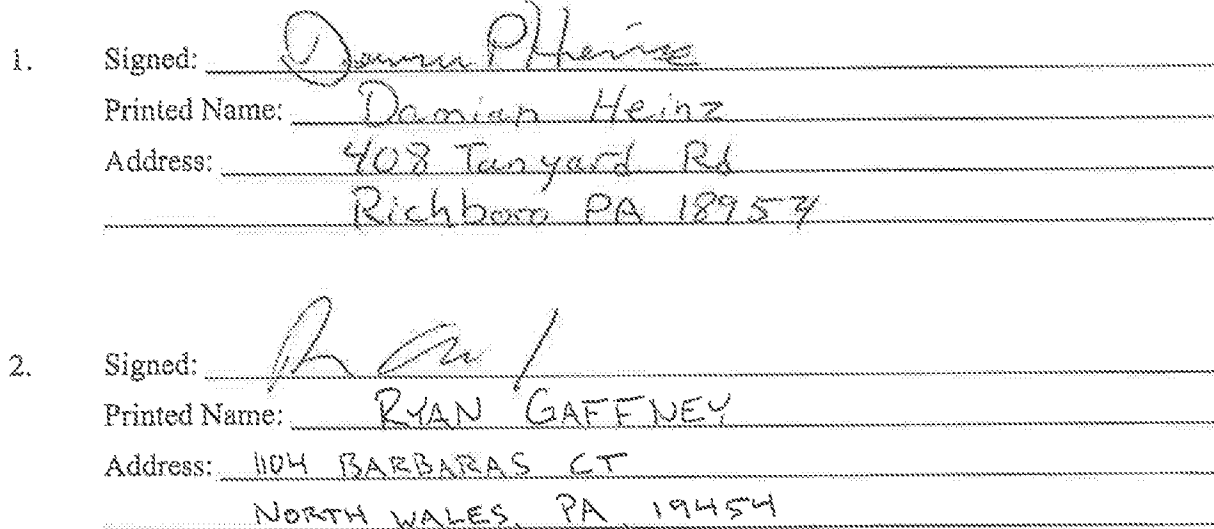 1. Signed: Damian P Heinz
Printed Name: Damian Heinz
Address: 408 Tanyard Rd
Richboro PA 18954
2. Signed:
Printed Name: RYAN GAFFNEY
Address: 1104 BARBARAS CT
NORTH WALES, PA, 19454